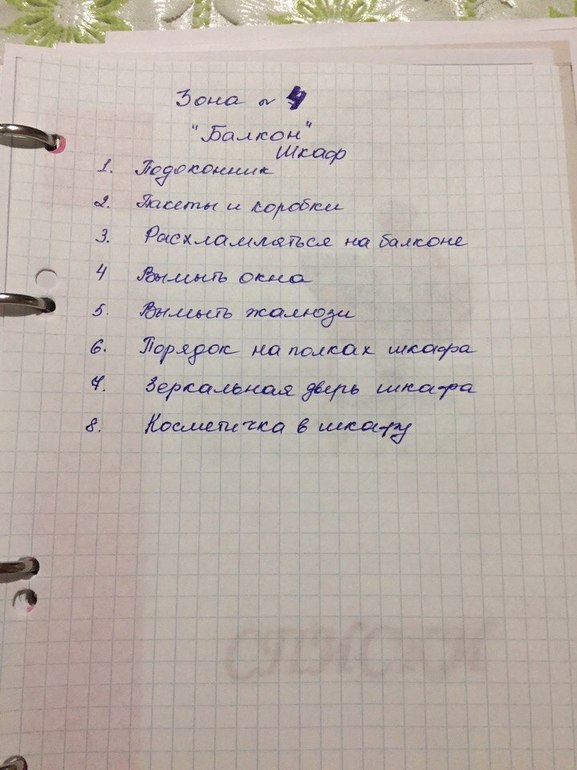 Зона № 4
"Балкон"
Шкаф
1. Подоконник
2. Пакеты и коробки
3. Расхламляться на балконе
4 Вымыть окна
5. Вымыть жалюзи
6. Порядок на полках шкафа
7. Зеркальная дверь шкафа
8. Косметичка в шкафу